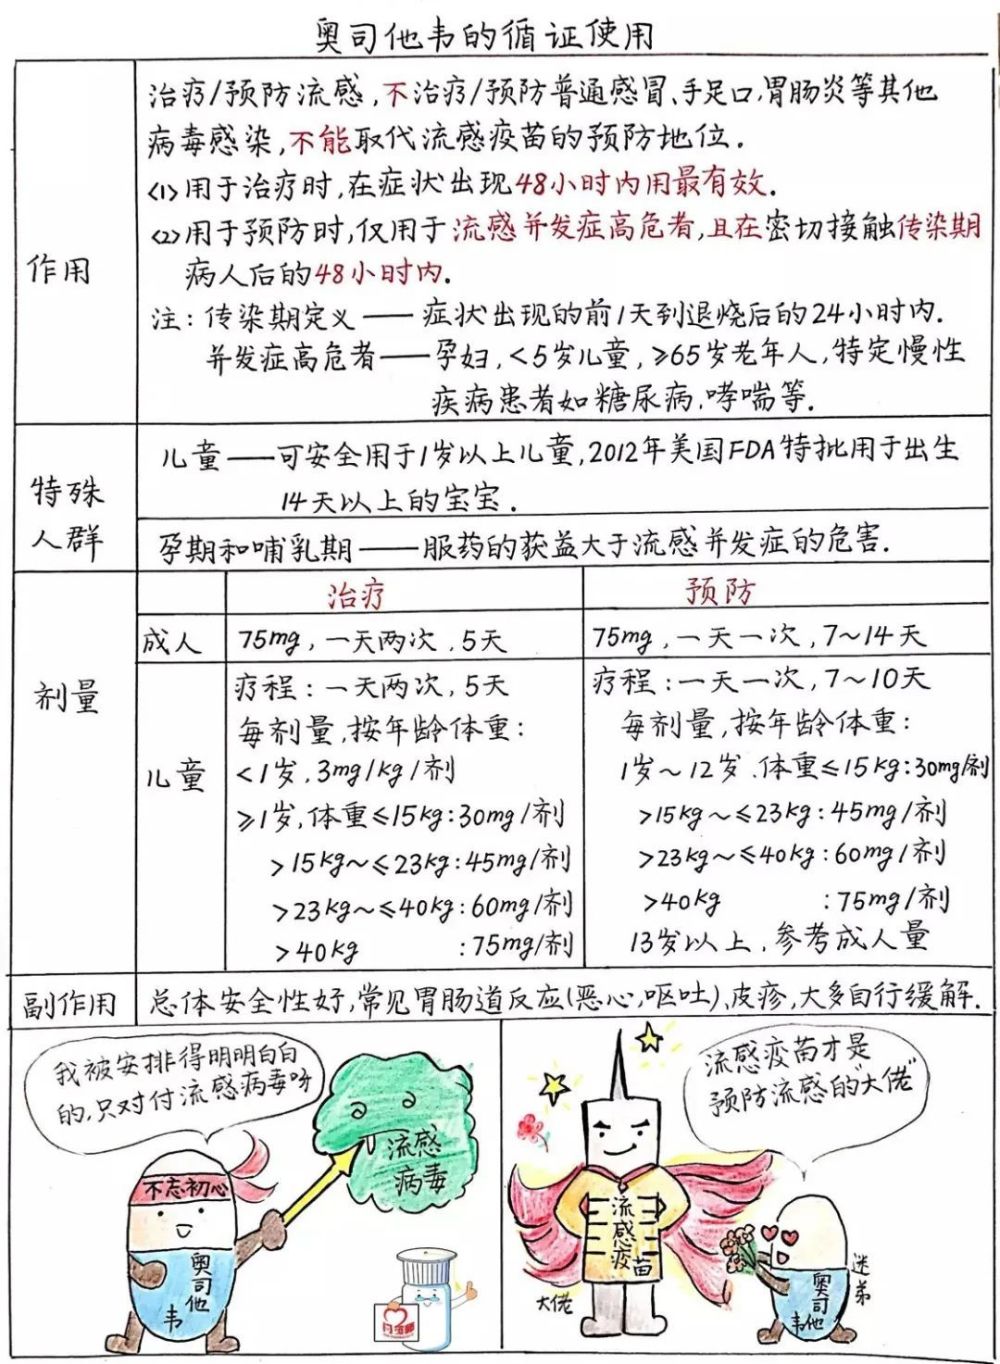 奥司他韦的循证使用
作用
治疗/预防流感,不治疗/预防普通感冒、手足口,胃肠炎等其他
病毒感染,不能取代流感疫苗的预防地位.
<1>用于治疗时,在症状出现48小时内用最有效.
<2>用于预防时,仅用于流感并发症高危者,且在密切接触传染期
病人后的48小时内.
注:传染期定义——症状出现的前1天到退烧后的24小时内.
并发症高危者——孕妇,<5岁儿童,≥65岁老年人,特定慢性
疾病患者如糖尿病、哮喘等.
特殊
人群
儿童——可安全用于1岁以上儿童,2012年美国FDA特批用于出生
14天以上的宝宝.
孕期和哺乳期——服药的获益大于流感并发症的危害.
剂量
治疗
预防
成人
75mg,一天两次,5天
75mg,一天一次,7~14天
儿童
疗程:一天两次,5天
每剂量,按年龄体重:
<1岁,3mg/kg/剂
≥1岁,体重≤15kg:30mg/剂
>15kg~≤23kg:45mg/剂
>23kg~≤40kg:60mg/剂
>40kg :75mg/剂
疗程:一天一次,7~10天
每剂量,按年龄体重:
1岁~12岁、体重≤15kg:30mg/剂
>15kg~≤23kg:45mg/剂
>23kg~≤40kg:60mg/剂
>40kg :75mg/剂
13岁以上、参考成人量
副作用
总体安全性好,常见胃肠道反应(恶心,呕吐)、皮疹,大多自行缓解.
我被安排得明明白白
的,只对付流感病毒呀
流感
病毒
不忘初心
奥司他
韦
流感疫苗才是
预防流感的"大佬"
流感疫苗
大佬
奥司他
韦
迷弟